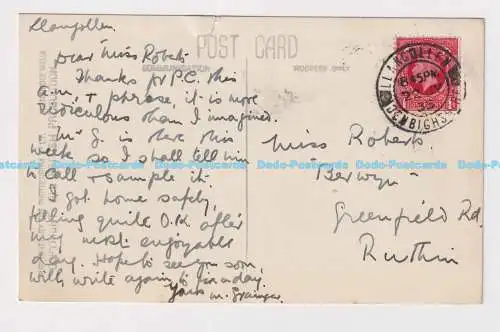 Llangollen
Dear Miss Roberts
Thanks for P.C. this
a.m. + phrase, it is more
ridiculous than I imagined.
Mr G. is here this
week so I shall tell him
to call + sample it.
got home safely,
feeling quite O.K. after
my most enjoyable
day. Hope to see you soon,
will write again to-morrow
Yours M.
POST CARD
COMMUNICATION
ADDRESS ONLY
LLANGOLLEN
6 45PM
DENBIGHSHIRE
Miss Roberts.
"Berwyn"
Greenfield Rd.
Ruthin
Dodo-Postcards Dodo-Postcards Dodo-Postcards Dodo-Postcards Dodo-Postcards